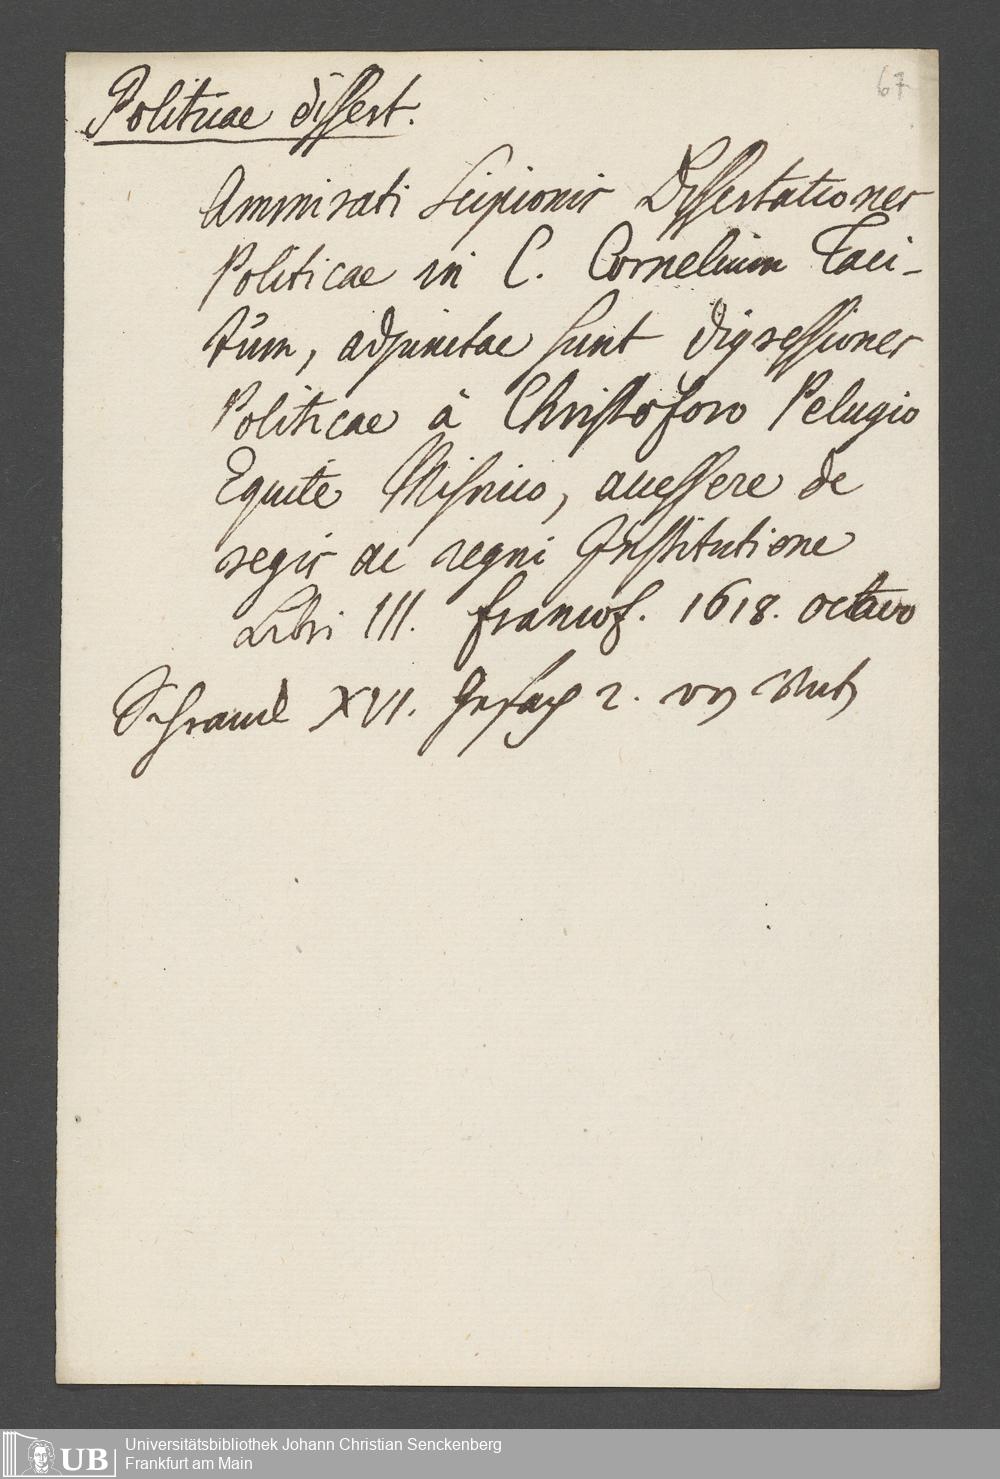 67
Politicae dissert.
Ammirati Scipionis Dissertationes
Politicae in C. Cornelium Taci-
tum, adjunctae sunt digressiones
Politicae à Christoforo Pelugio
Equite Misnico, accessere de
regis ac regni Institutione
Libri III. francof. 1618. octavo
Schranck XVI. Gefach 2.
Universitätsbibliothek Johann Christian Senckenberg
UB Frankfurt am Main